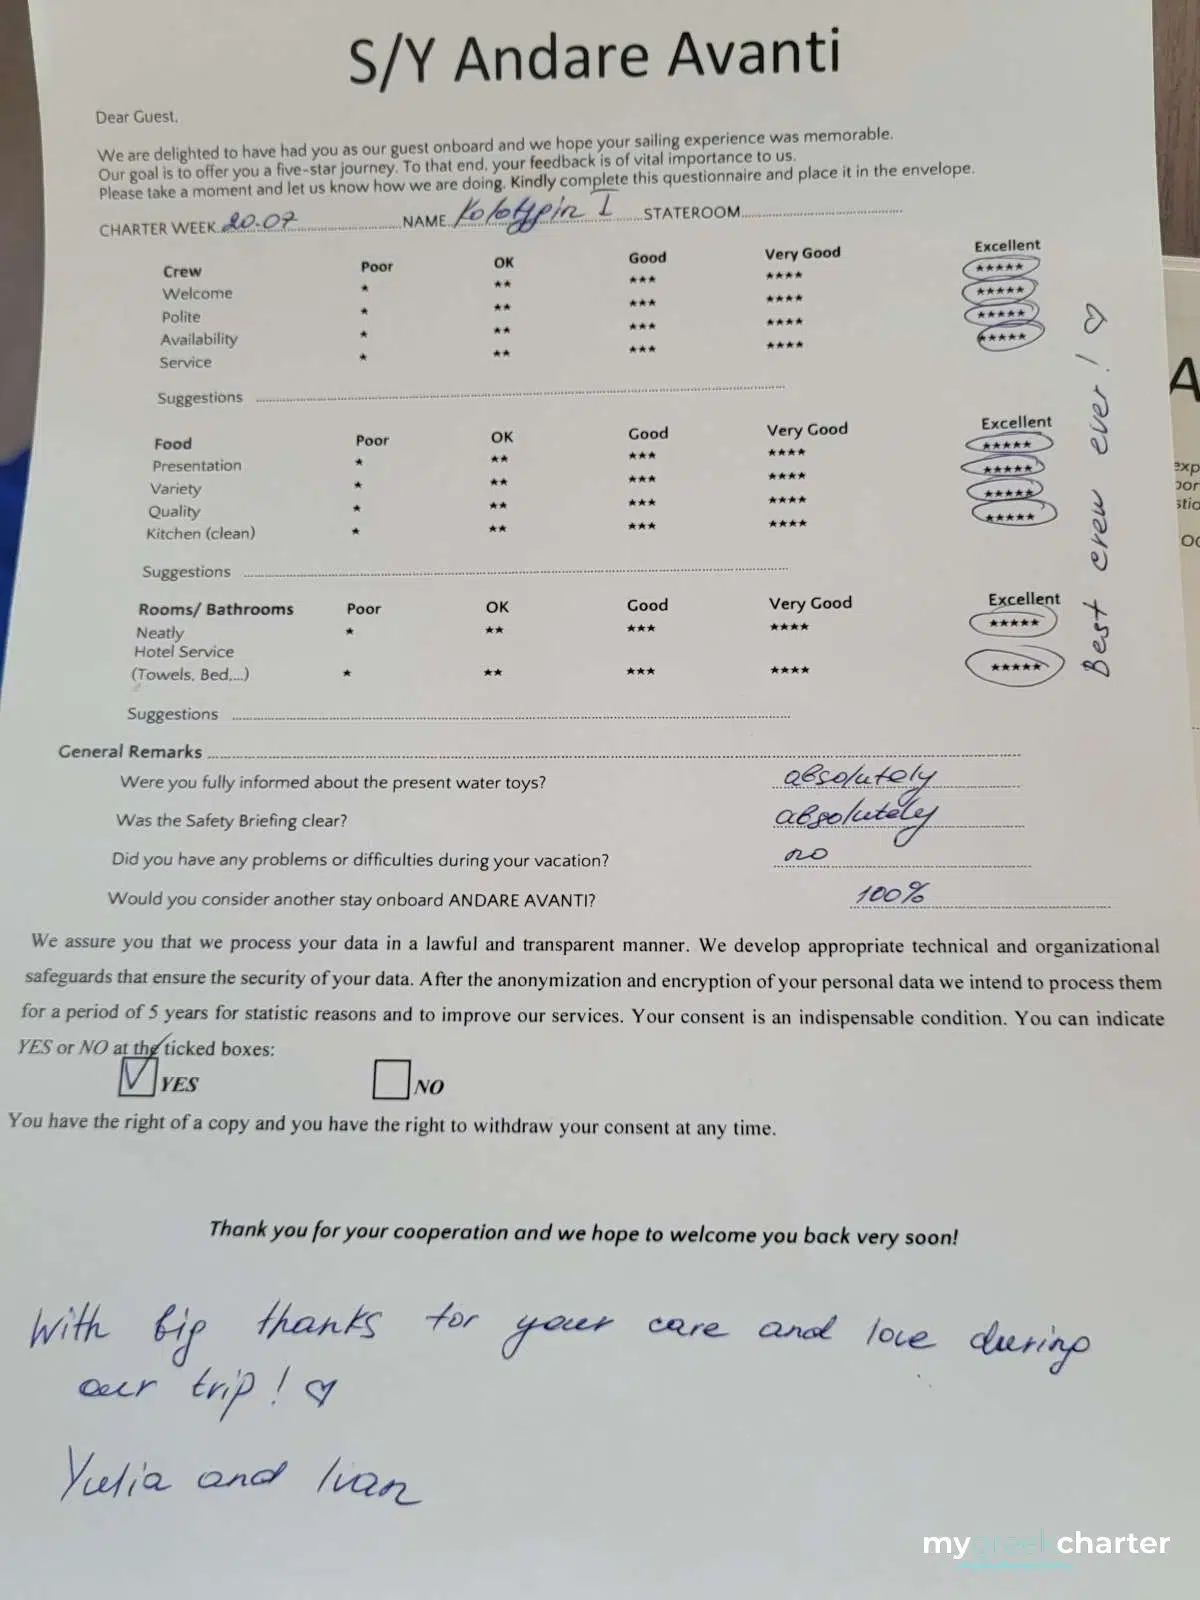 S/Y Andare Avanti
Dear Guest,
We are delighted to have had you as our guest onboard and we hope your sailing experience was memorable.
Our goal is to offer you a five-star journey. To that end, your feedback is of vital importance to us.
Please take a moment and let us know how we are doing. Kindly complete this questionnaire and place it in the envelope.
CHARTER WEEK 20.07 NAME Kolotypin I STATEROOM
Crew Poor OK Good Very Good Excellent
Welcome * ** *** **** *****
Polite * ** *** **** *****
Availability * ** *** **** *****
Service * ** *** **** *****
Suggestions
Food Poor OK Good Very Good Excellent
Presentation * ** *** **** *****
Variety * ** *** **** *****
Quality * ** *** **** *****
Kitchen (clean) * ** *** **** *****
Suggestions
Rooms/ Bathrooms Poor OK Good Very Good Excellent
Neatly * ** *** **** *****
Hotel Service
(Towels, Bed,...) * ** *** **** *****
Suggestions
Best crew ever! ♡
General Remarks
Were you fully informed about the present water toys? absolutely
Was the Safety Briefing clear? absolutely
Did you have any problems or difficulties during your vacation? no
Would you consider another stay onboard ANDARE AVANTI? 100%
We assure you that we process your data in a lawful and transparent manner. We develop appropriate technical and organizational
safeguards that ensure the security of your data. After the anonymization and encryption of your personal data we intend to process them
for a period of 5 years for statistic reasons and to improve our services. Your consent is an indispensable condition. You can indicate
YES or NO at the ticked boxes:
YES NO
You have the right of a copy and you have the right to withdraw your consent at any time.
Thank you for your cooperation and we hope to welcome you back very soon!
With big thanks for your care and love during
our trip! ♡
Yulia and Ivan
my greek charter